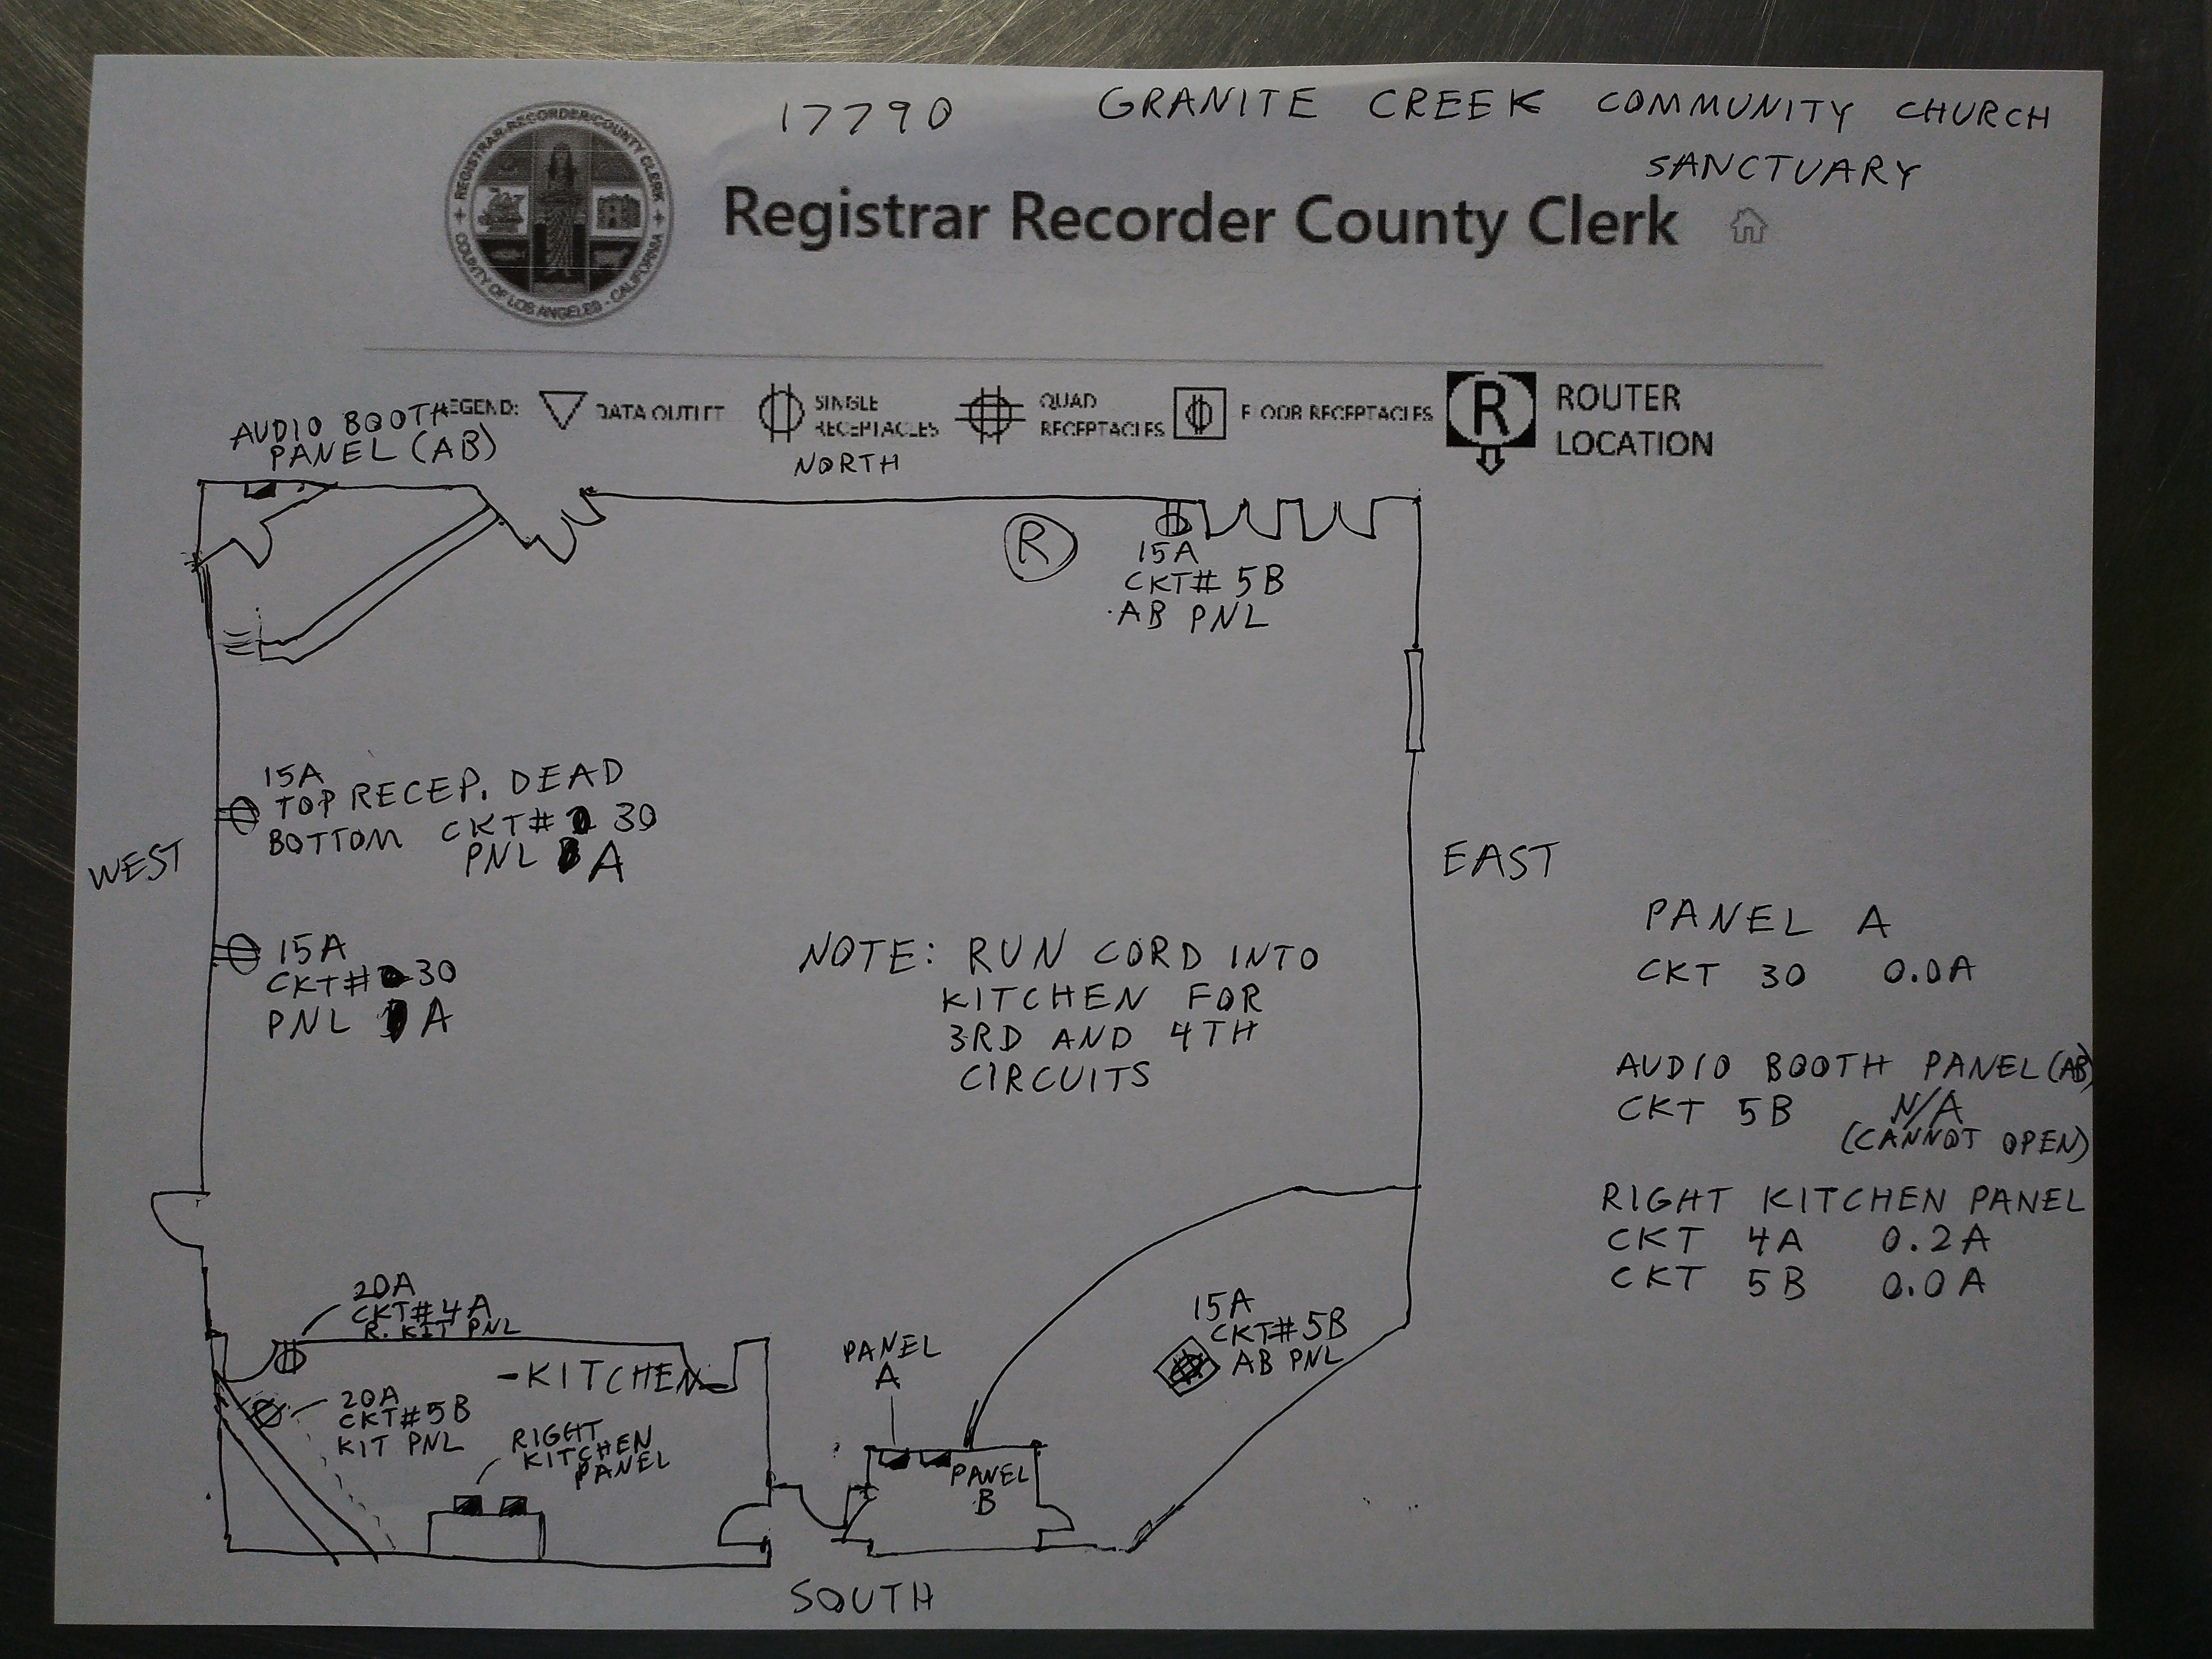 17790 GRANITE CREEK COMMUNITY CHURCH
SANCTUARY
REGISTRAR-RECORDER/COUNTY CLERK
COUNTY OF LOS ANGELES - CALIFORNIA
Registrar Recorder County Clerk
LEGEND:
DATA OUTLET
SINGLE
RECEPTACLES
QUAD
RECEPTACLES
FLOOR RECEPTACLES
R
ROUTER
LOCATION
AUDIO BOOTH
PANEL (AB)
NORTH
R
15A
CKT# 5B
AB PNL
15A
TOP RECEP. DEAD
BOTTOM CKT# 30
PNL A
WEST
EAST
15A
CKT# 30
PNL A
NOTE: RUN CORD INTO
KITCHEN FOR
3RD AND 4TH
CIRCUITS
PANEL A
CKT 30 0.0A
AUDIO BOOTH PANEL (AB)
CKT 5B N/A
(CANNOT OPEN)
RIGHT KITCHEN PANEL
CKT 4A 0.2A
CKT 5B 0.0A
20A
CKT#4A
R. KIT PNL
-KITCHEN
20A
CKT#5B
KIT PNL
RIGHT
KITCHEN
PANEL
PANEL
A
PANEL
B
15A
CKT#5B
AB PNL
SOUTH